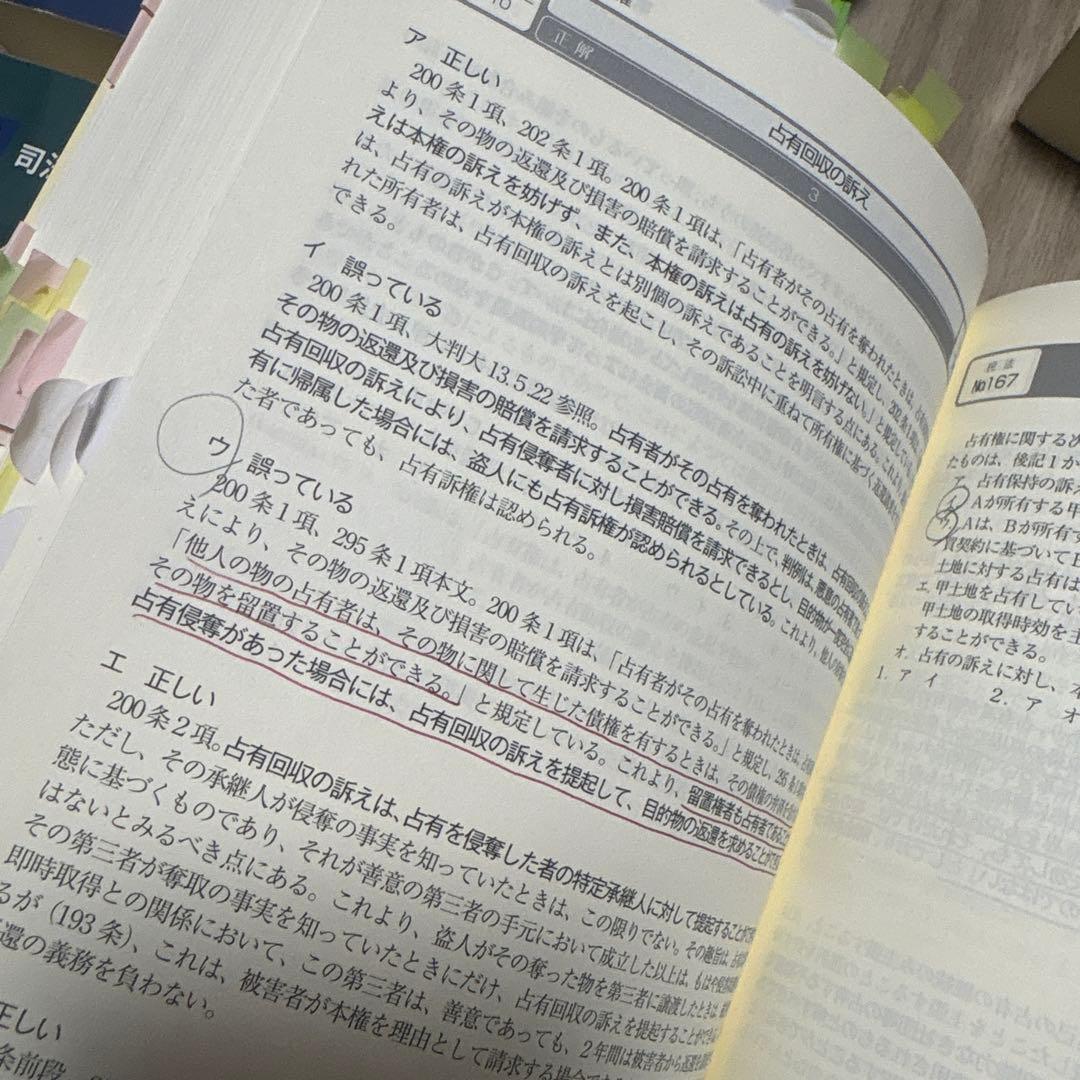 司法
正解
3
占有回収の訴え
ア 正しい
200条1項、202条1項。200条1項は、「占有者がその占有を奪われたときは、占有
より、その物の返還及び損害の賠償を請求することができる。」と規定し、202条1項
えは本権の訴えを妨げず、また、本権の訴えは占有の訴えを妨げない。」と規定している
は、占有の訴えが本権の訴えとは別個の訴えであることを明言する点にある。これより
れた所有者は、占有回収の訴えを起こし、その訴訟中に重ねて所有権に基づく返還請求
できる。
イ 誤っている
200条1項、大判大13.5.22参照。占有者がその占有を奪われたときは、占有回収の訴え
その物の返還及び損害の賠償を請求することができる。その上で、判例は、悪意の占有者で
占有回収の訴えにより、占有侵奪者に対し損害賠償を請求できるとし、目的物が
有に帰属した場合には、盗人にも占有訴権が認められるとしている。これより、他人の
た者であっても、占有訴権は認められる。
ウ 誤っている
200条1項、295条1項本文。200条1項は、「占有者がその占有を奪われたときは、占有
えにより、その物の返還及び損害の賠償を請求することができる。」と規定し、295条
「他人の物の占有者は、その物に関して生じた債権を有するときは、その債権の弁済を
その物を留置することができる。」と規定している。これより、留置権者も占有者である
占有侵奪があった場合には、占有回収の訴えを提起して、目的物の返還を求めることができ
エ 正しい
200条2項。占有回収の訴えは、占有を侵奪した者の特定承継人に対して提起することが
ただし、その承継人が侵奪の事実を知っていたときは、この限りでない。その趣旨は、占有
態に基づくものであり、それが善意の第三者の手元において成立した以上は、もはや
はないとみるべき点にある。これより、盗人がその奪った物を第三者に譲渡したときは
その第三者が奪取の事実を知っていたときにだけ、占有回収の訴えを提起することができ
即時取得との関係において、この第三者は、善意であっても、2年間は被害者から返還を
るが（193条）、これは、被害者が本権を理由として請求する場合で
還の義務を負わない。
正しい
条前段
No167
占有権に関する次
たものは、後記1か
ア. 占有保持の訴え
イ. Aが所有する甲
ウ. Aは、Bが所有す
質契約に基づいてB
土地に対する占有は
エ. 甲土地を占有してい
甲土地の取得時効を主
することができる。
オ. 占有の訴えに対し、本
1. ア イ 2. ア オ